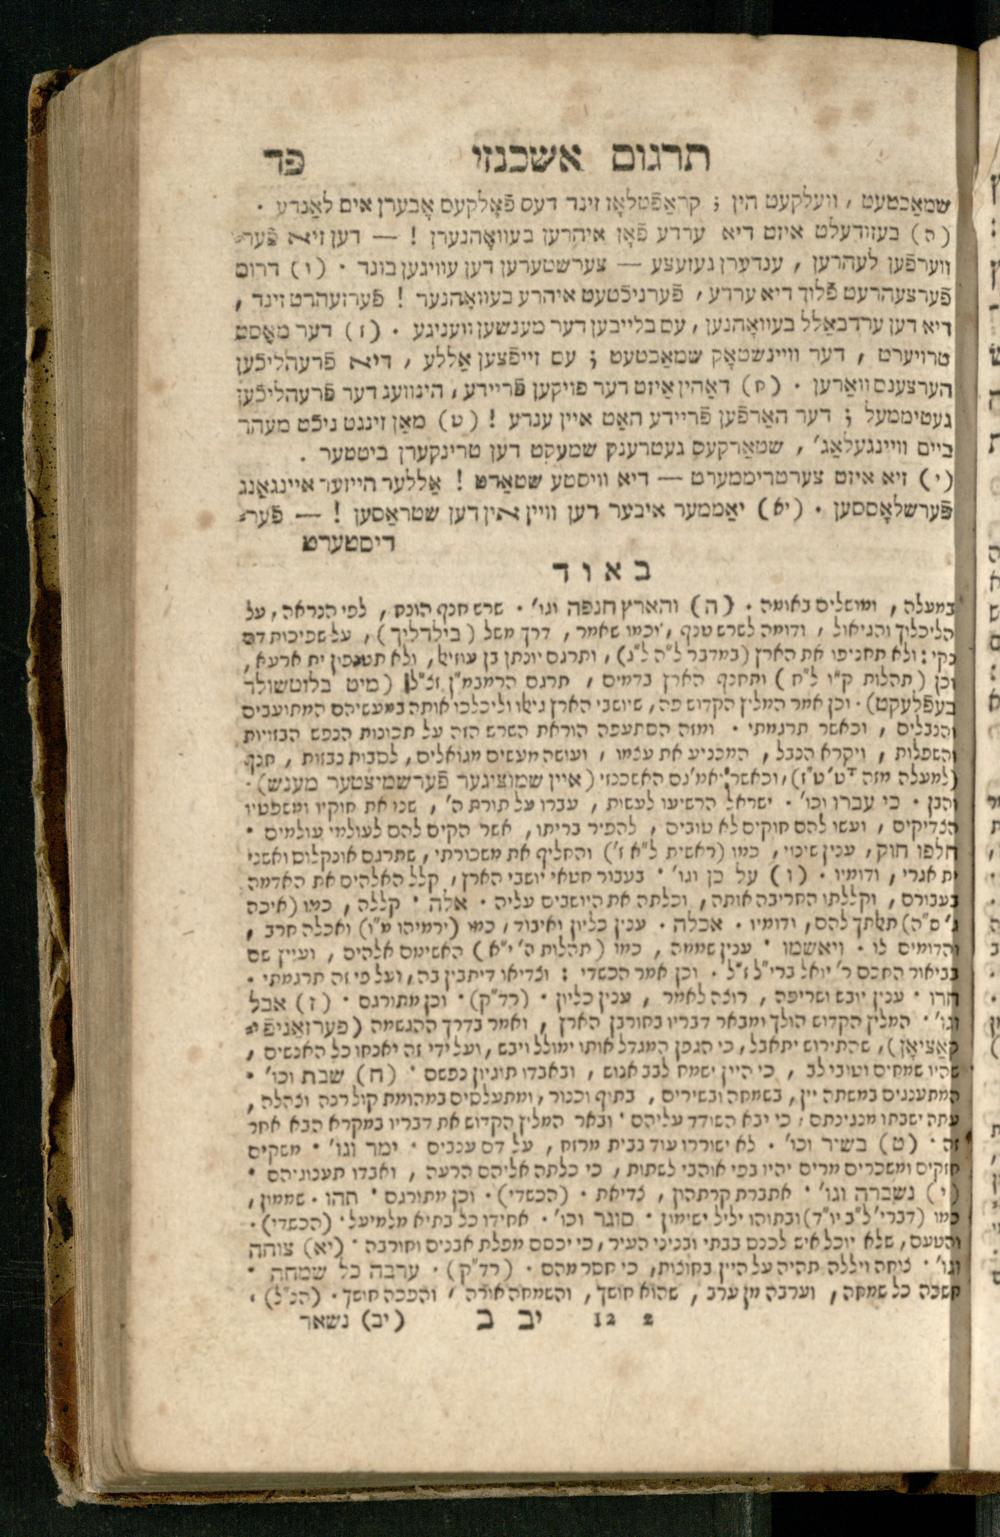 תרגום אשכנזי פד
שמאַכטעט, וועלקעט הין ; קראַפֿטלאָז זינד דעס פֿאָלקעס אָבערן אים לאַנדע .
(ה) בעזודעלט איזט דיא ערדע פֿאָן איהרען בעוואָהנערן ! — דען זיא פֿער־
ווערפֿען לעהרען , ענדערן געזעצע — צערשטערען דען עוויגען בונד . (ו) דרום
פֿערצעהרעט פֿלוך דיא ערדע , פֿערניכֿטעט איהרע בעוואָהנער ! פֿערזעהרט זינד ,
דיא דען ערדבאַלל בעוואָהנען , עס בלייבען דער מענשען וועניגע . (ז) דער מאָסט
טרויערט , דער וויינשטאָק שמאַכטעט ; עס זייפֿצען אַללע , דיא פֿרעהליכֿען
הערצענס וואַרען . (ח) דאַהין איזט דער פויקען פֿריידע , הינוועג דער פֿרעהליכֿען
געטיממעל ; דער האַרפֿען פֿריידע האַט איין ענדע ! (ט) מאַן זינגט ניכֿט מעהר
ביים וויינגעלאַג' , שטאַרקעס געטרענק שמעקט דען טרינקערן ביטטער .
(י) זיא איזט צערטריממערט — דיא וויסטע שטאַדט ! אַללער הייזער איינגאַנג
פֿערשלאָססען . (יא) יאַממער איבער דען וויין אין דען שטראַסען ! — פֿער־
דיסטערט
באור
במעלה , ומושלים באומה . (ה) והארץ חנפה וגו' . שרש חנף הונח , לפי הנראה , על
הליכלוך והגיאול , ודומה לשרש טנף , וכמו שאמר , דרך משל (בילדליך) , על שפיכות דם
נקי : ולא תחניפו את הארץ (במדבר ל"ה ל"ג) , ותרגם יונתן בן עוזיאל , ולא תטנפון ית ארעא ,
וכן (תהלות ק"ו ל"ח) ותחנף הארץ בדמים , תרגם הרמבמ"ן ז"ל (מיט בלוטשולד
בעפֿלעקט) . וכן אמר המליץ הקדוש פה , שיושבי הארץ גאלו וליכלכו אותה במעשיהם המתועבים
והנבלים , וכאשר תרגמתי . ומזה הסתעפה הוראת השרש הזה על תכונות הנפש הבזויות
והשפלות , ויקרא הנבל , המכניע את עצמו , ועושה מעשים מגואלים , לסבות נבזות , חנף
(למעלה מזה ט' ט"ז) , וכאשר יאמ' גם האשכנזי (איין שמוציגער פֿערשמיצטער מענש) .
והבן . כי עברו וכו' . ישראל הרשיעו לעשות , עברו על תורת ה' , שנו את חוקיו ומשפטיו
הצדיקים , ועשו להם חוקים לא טובים , להפיר בריתו , אשר הקים להם לעולמי עולמים .
חלפו חוק , ענין שינוי , כמו (ראשית ל"א ז') והחליף את משכורתי , שתרגם אונקלוס ואשני
ית אגרי , ודומיו . (ו) על כן וגו' . בעבור חטאי יושבי הארץ , קלל האלהים את האדמה
בעבורם , וקללתו החריבה אותה , וכלתה את היושבים עליה . אלה . קללה , כמו (איכה
ג' ס"ה) תאלתך להם , ודומיו . אכלה . ענין כליון ואיבוד , כמו (ירמיהו מ"ו) ואכלה חרב ,
והדומים לו . ויאשמו . ענין שממה , כמו (תהלות ה' י"א) האשימם אלהים , ועיין שם
בביאור החכם ר' יואל ברי"ל ז"ל . וכן אמר הכשדי : וצדיאו דיתבין בה , ועל פי זה תרגמתי .
חרו . ענין יובש ושריפה , רוצה לאמר , ענין כליון . (רד"ק) . וכן מתורגם . (ז) אבל
וגו' . המליץ הקדוש הולך ומבאר דבריו בחורבן הארץ , ואמר בדרך ההגשמה (פערזאָניפֿי־
קאַציאָן) , שהתירוש יתאבל , כי הגפן המגדל אותו ימולל ויבש , ועל ידי זה יאנחו כל האנשים ,
שהיו שמחים וטובי לב , כי היין ישמח לבב אנוש , ובאבדו תוגיון נפשם . (ח) שבת וכו' .
המתענגים במשתה יין , בשמחה ובשירים , בתוף וכנור , ומתעלסים במהומת קול רנה וצהלה ,
עתה ישבתו מנגינתם , כי יבא השודד עליהם . ובאר המליץ הקדוש את דבריו במקרא הבא אחר
זה . (ט) בשיר וכו' . לא ישוררו עוד בבית מרזח , על דם ענבים . ימר וגו' . משקים
חזקים ומשכרים מרים יהיו בפי אוהבי לשתות , כי כלתה אליהם הרעה , ואבדו תענוגיהם .
(י) נשברה וגו' . אתברת קרתהון , צדיאת . (הכשדי) . וכן מתורגם . תהו . שממון ,
כמו (דברי' ל"ב יו"ד) ובתוהו ילל ישימון . סוגר וכו' . אחידו כל בתיא מלמיעל . (הכשדי) .
והטעם , שלא יוכל איש לכנס בבתי ובניני העיר , כי יכסם מפלת אבנים וחורבה . (יא) צוחה
וגו' . צוחה ויללה תהיה על היין בחוצות , כי חסר מהם . (רד"ק) . ערבה כל שמחה .
חשכה כל שמחה , וערבה מן ערב , שהוא חושך , והשמחה אורה , והפכה חושך . (הנ"ל) .
2 12 יב ב (יב) נשאר